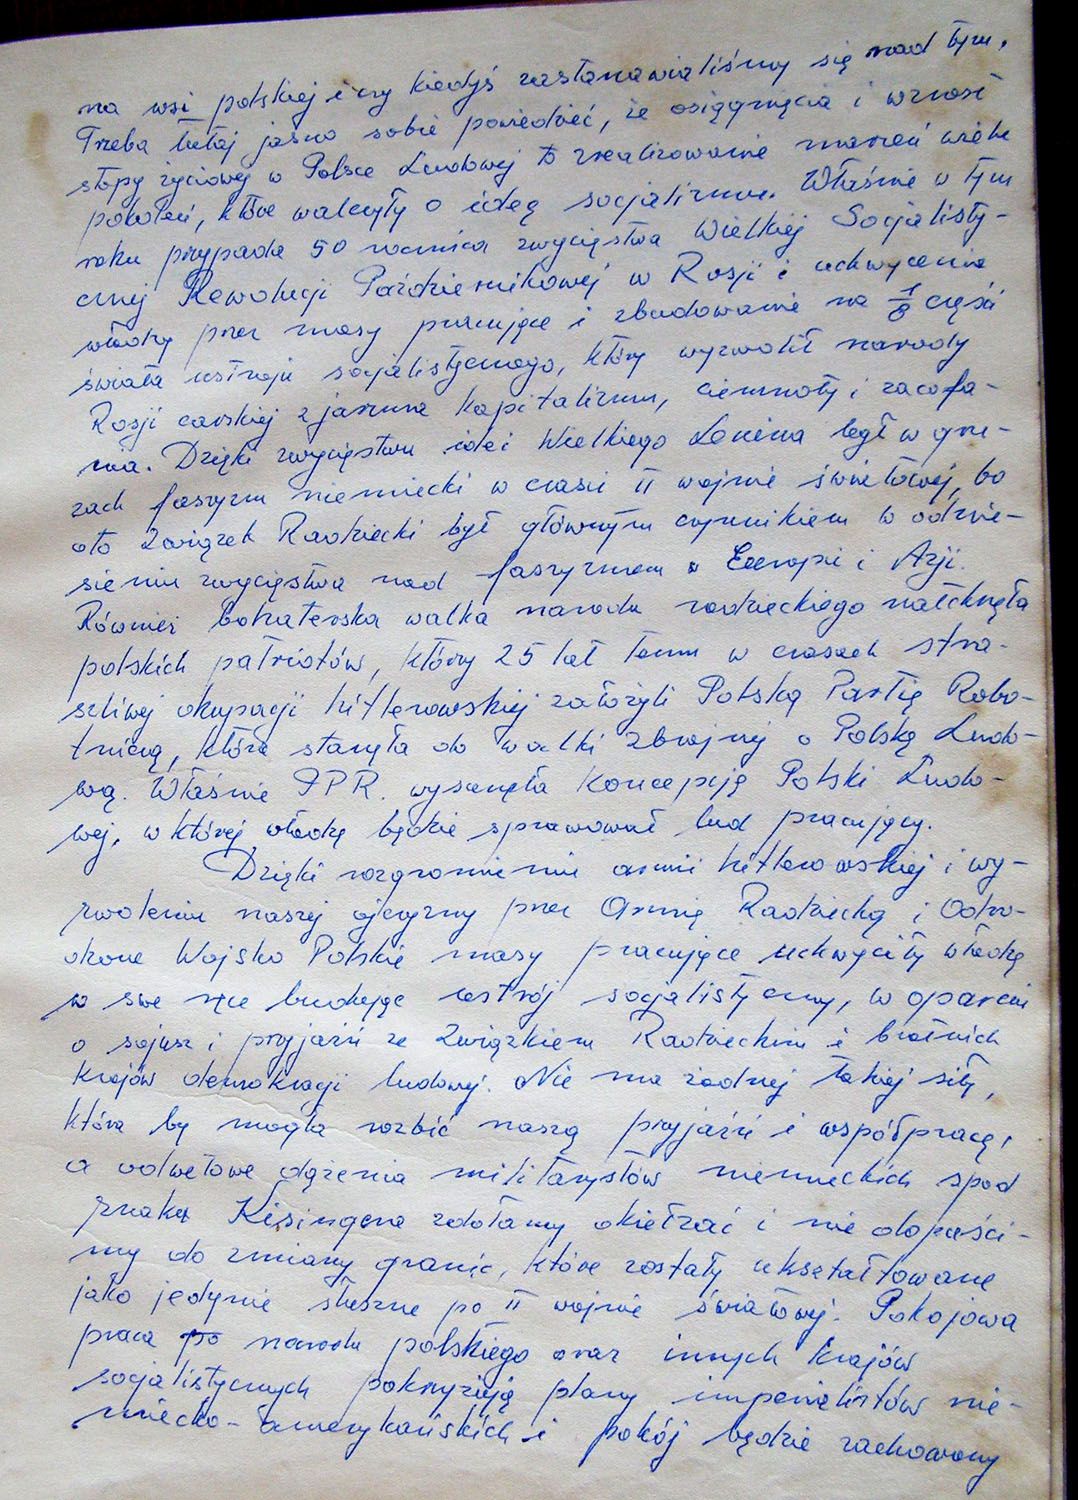 na wsi polskiej i czy kiedyś zastanawialiśmy się nad tym.
Trzeba tutaj jasno sobie powiedzieć, że osiągnięcia i wzrost
stopy życiowej w Polsce Ludowej to zrealizowanie marzeń wielu
pokoleń, które walczyły o ideę socjalizmu. Właśnie w tym
roku przypada 50 rocznica zwycięstwa Wielkiej Socjalisty-
cznej Rewolucji Październikowej w Rosji i uchwycenie
władzy przez masy pracujące i zbudowanie na 1/6 części
świata ustroju socjalistycznego, który wyzwolił narody
Rosji carskiej z jarzma kapitalizmu, ciemnoty i zacofa-
nia. Dzięki zwycięstwu idei Wielkiego Lenina legł w gru-
zach faszyzm niemiecki w czasie II wojnie światowej, bo
oto Związek Radziecki był głównym czynnikiem w odnie-
sieniu zwycięstwa nad faszyzmem w Europie i Azji.
Również bohaterska walka narodu radzieckiego natchnęła
polskich patriotów, który 25 lat temu w czasach stra-
szliwej okupacji hitlerowskiej założyli Polską Partię Robo-
tniczą, która stanęła do walki zbrojnej o Polskę Ludo-
wą. Właśnie PPR. wysunęła koncepcję Polski Ludo-
wej, w której władzę będzie sprawował lud pracujący.
Dzięki rozgromieniu armii hitlerowskiej i wy-
zwoleniu naszej ojczyzny przez Armię Radziecką i Odro-
dzone Wojsko Polskie masy pracujące uchwyciły władzę
w swe ręce budując ustrój socjalistyczny, w oparciu
o sojusz i przyjaźń ze Związkiem Radzieckim i bratnich
krajów demokracji ludowej. Nie ma żadnej takiej siły,
która by mogła rozbić naszą przyjaźń i współpracę,
a odwetowe dążenia militarystów niemieckich spod
znaku Kisingera zdołamy okiełzać i nie dopuści-
my do zmiany granic, które zostały ukształtowane
jako jedynie słuszne po II wojnie światowej. Pokojowa
praca po narodu polskiego oraz innych krajów
socjalistycznych pokrzyżują plany imperialistów nie-
miecko-amerykańskich i pokój będzie zachowany